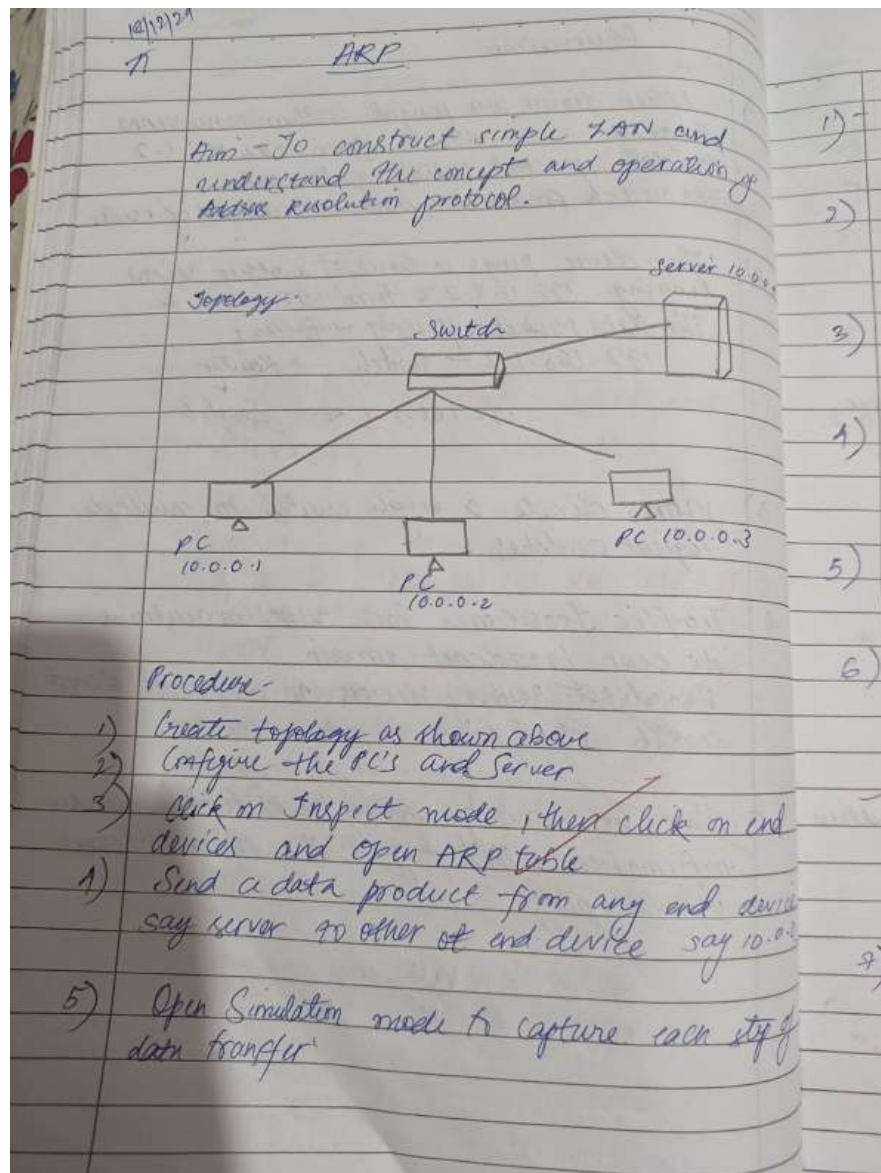 12/12/24
ARP
Aim - To construct simple LAN and
understand the concept and operation of
Address Resolution protocol.
Server 10.0.0.
Topology
Switch
PC
10.0.0.1
PC
10.0.0.2
PC 10.0.0.3
Procedure-
1) Create topology as shown above
2) Configure the PC's and Server
3) Click on Inspect mode, then click on end
devices and open ARP table
4) Send a data product from any end device
say server to other of end device say 10.0.
5) Open Simulation mode to capture each step of
data transfer
1)
2)
3)
4)
5)
6)